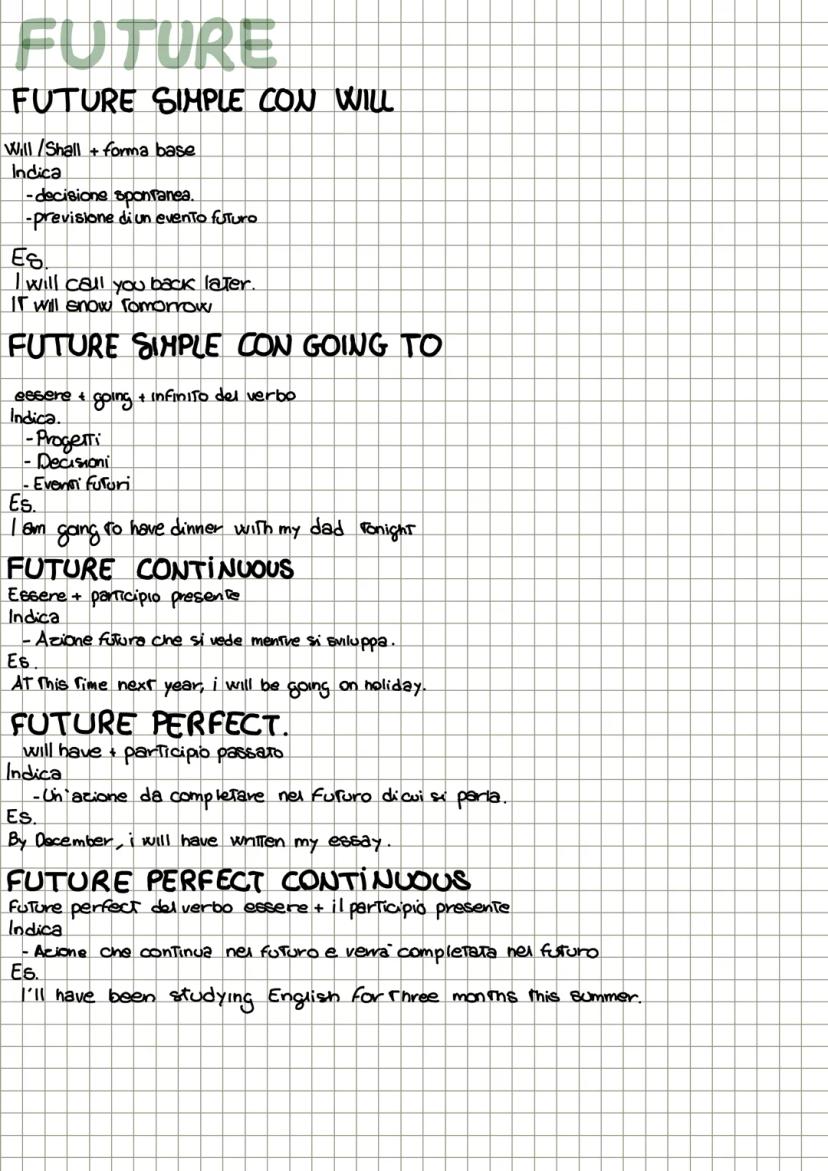 FUTURE
FUTURE SIMPLE CON WILL
Will/Shall + forma base
Indica
-decisione spontanea.
-previsione di un evento futuro
Es.
I will call you back later.
IT will snow Tomorrow
FUTURE SIMPLE CON GOING TO
essere + going + infinito del verbo
Indica.
- Progetti
- Decisioni
- Eventi futuri
Es.
I am going to have dinner with my dad tonight
FUTURE CONTINUOUS
Essere + participio presente
Indica
- Azione futura che si vede mentre si sviluppa.
Es.
AT this time next year, i will be going on holiday.
FUTURE PERFECT.
will have + participio passato
Indica
-Un'azione da completare nel futuro di cui si parla.
Es.
By December, i will have written my essay.
FUTURE PERFECT CONTINUOUS
Future perfect del verbo essere + il participio presente
Indica
- Azione che continua nel futuro e verrà completata nel futuro
Es.
I'll have been studying English for three months this summer.